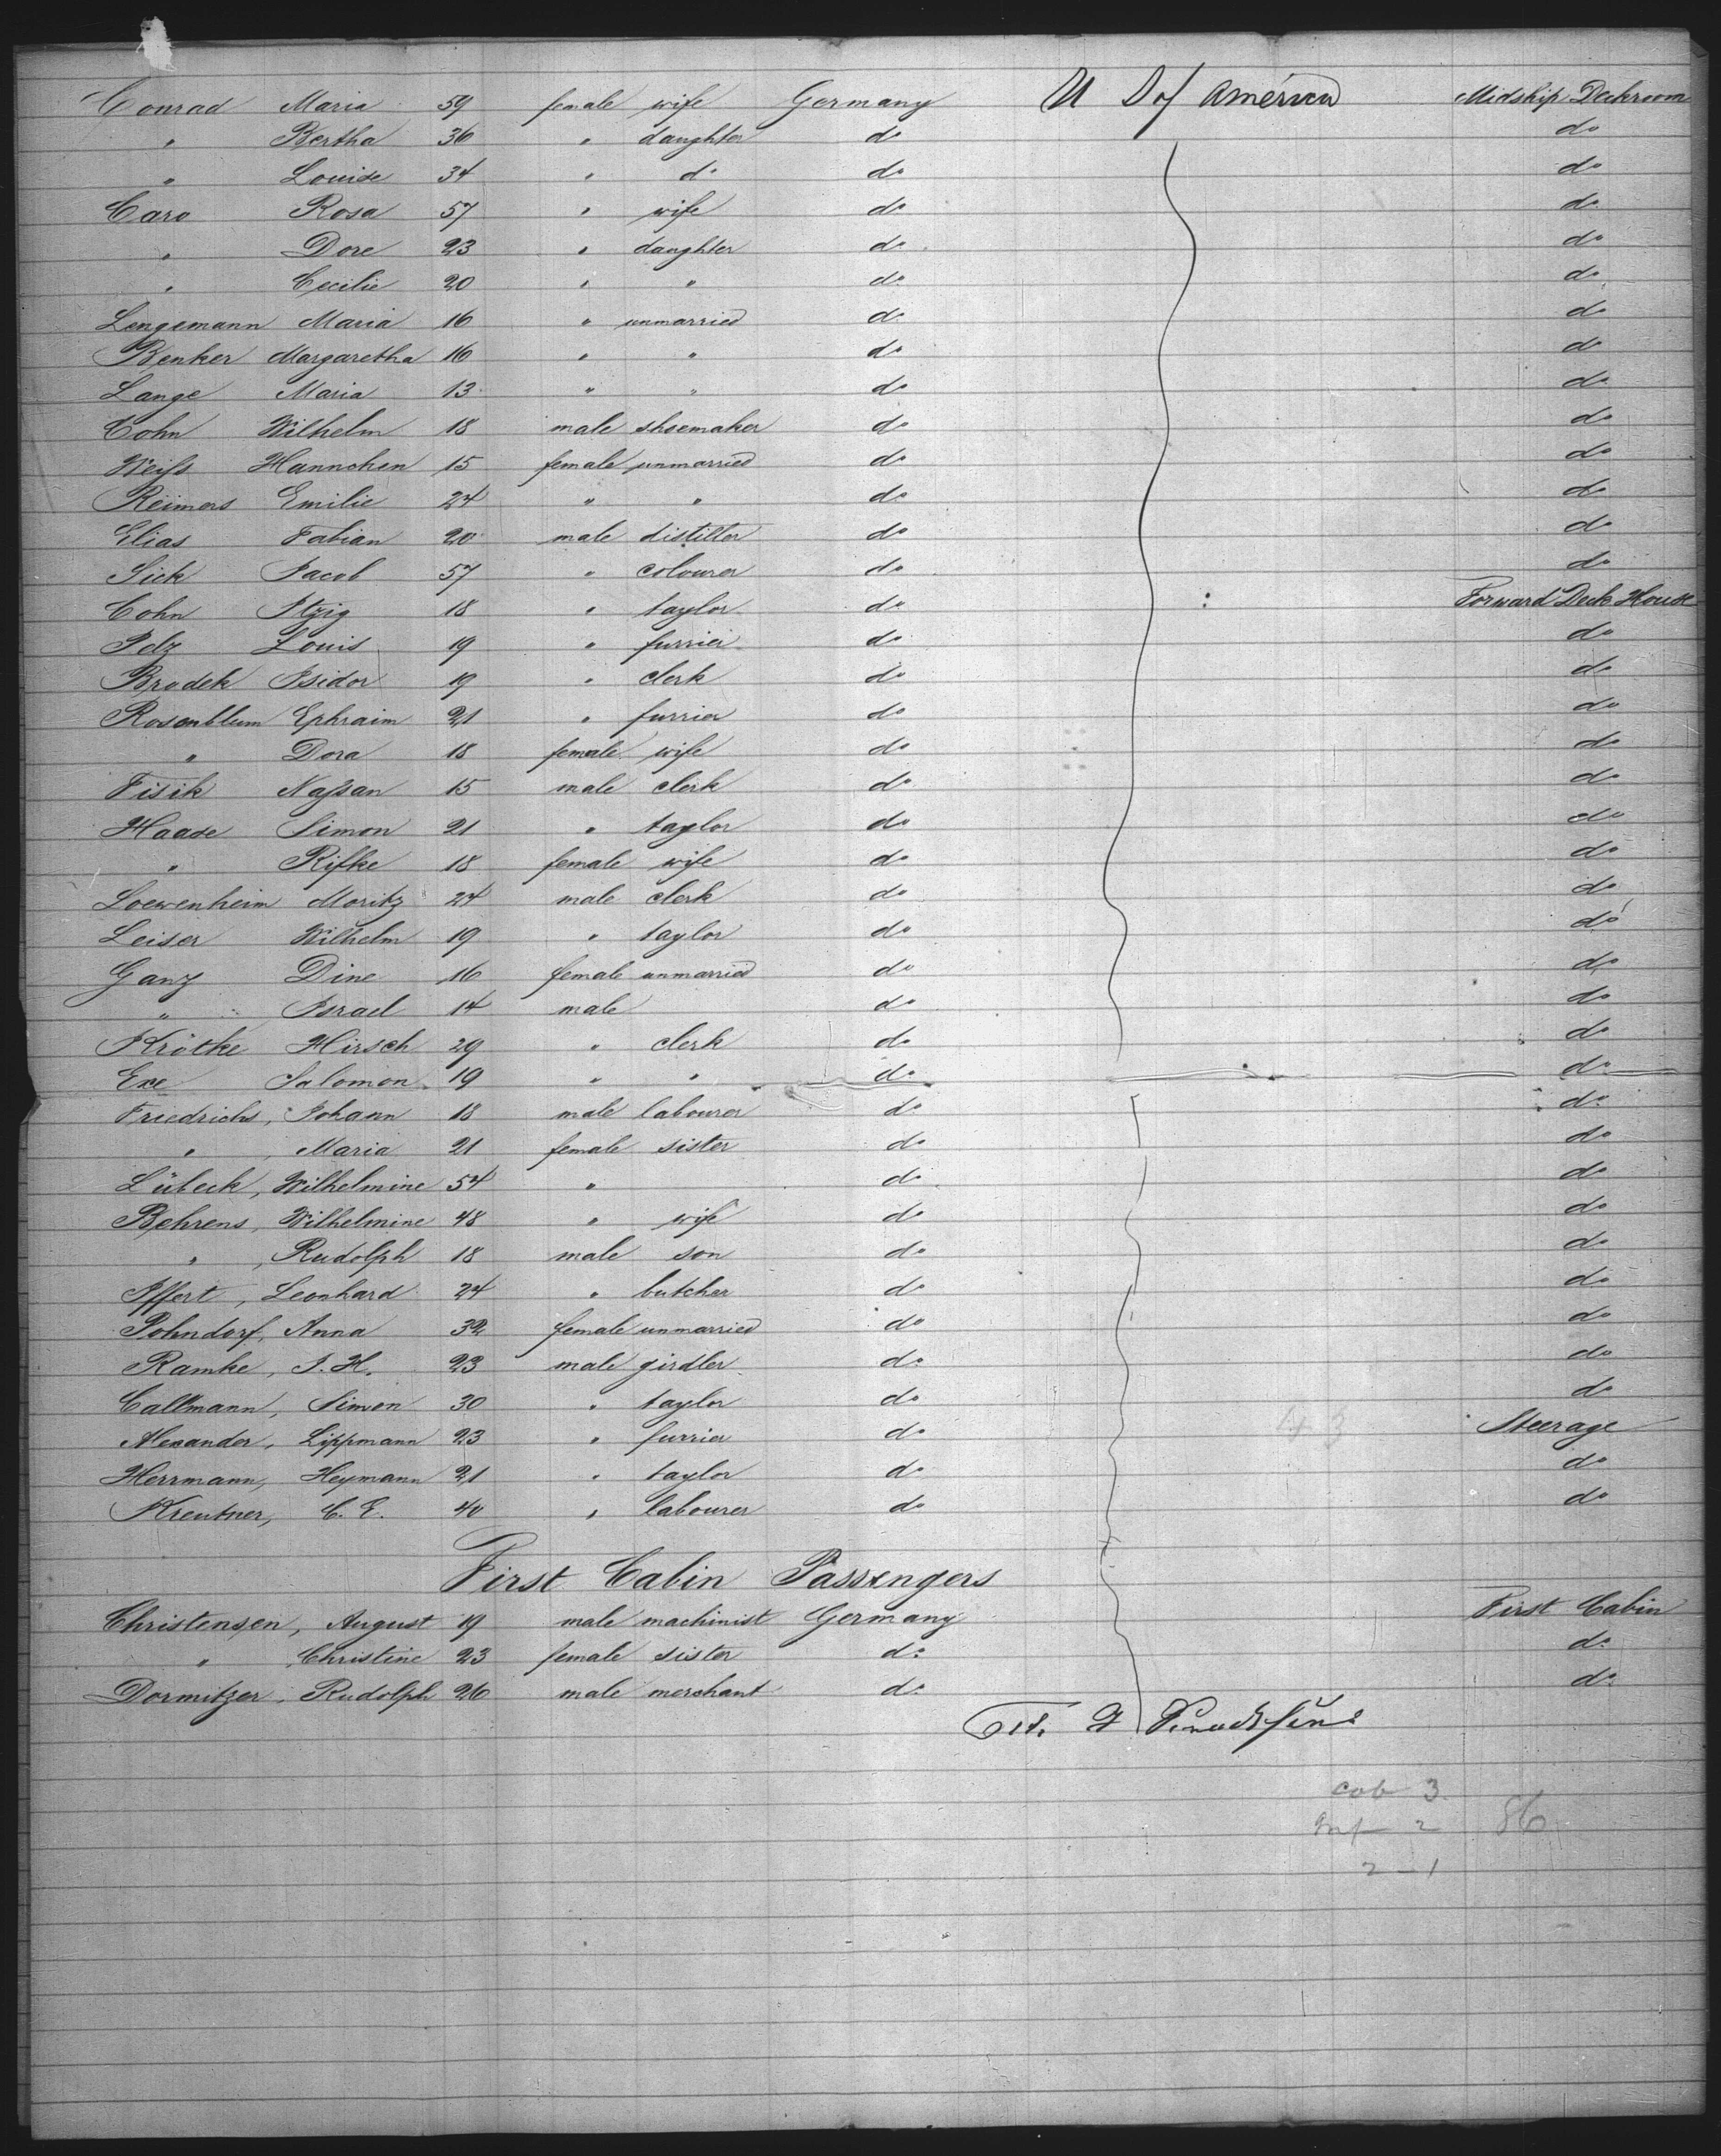 Conrad Maria 59 female wife Germany U S of America Midship Deckroom
" Bertha 36 " daughter do do
" Louise 34 " do do do
Caro Rosa 57 " wife do do
" Dore 23 " daughter do do
" Cecilie 20 " " do do
Lengemann Maria 16 " unmarried do do
Benker Margaretha 16 " " do do
Lange Maria 13 " " do do
Cohn Wilhelm 18 male shoemaker do do
Weiss Hannchen 15 female unmarried do do
Reimers Emilie 24 " " do do
Elias Fabian 20 male distiller do do
Sick Jacob 57 " colourer do do
Cohn Itzig 18 " taylor do Forward Deck House
Pelz Louis 19 " furrier do do
Brodek Isidor 19 " clerk do do
Rosenblum Ephraim 21 " furrier do do
" Dora 18 female wife do do
Fisik Nassan 15 male clerk do do
Haase Simon 21 " taylor do do
" Rifke 18 female wife do do
Loewenheim Moritz 24 male clerk do do
Leiser Wilhelm 19 " taylor do do
Ganz Dine 16 female unmarried do do
" Israel 14 male do do
Krötke Hirsch 29 " clerk do do
Exe Salomon 19 " " do do
Friedrichs, Johann 18 male labourer do do
" , Maria 21 female sister do do
Lübeck, Wilhelmine 54 " do do
Behrens, Wilhelmine 48 " wife do do
" , Rudolph 18 male son do do
Iffert, Leonhard 24 " butcher do do
Pohndorf, Anna 32 female unmarried do do
Ramke, J. H. 23 male girdler do do
Callmann, Simon 30 " taylor do do
Alexander, Lippmann 23 " furrier do Steerage
Herrmann, Heymann 21 " taylor do do
Kreutner, C. E. 40 " labourer do do
First Cabin Passengers
Christensen, August 19 male machinist Germany First Cabin
" , Christine 23 female sister do do
Dormitzer, Rudolph 26 male merchant do do
cab 3
Inf 2 86
2 - 1